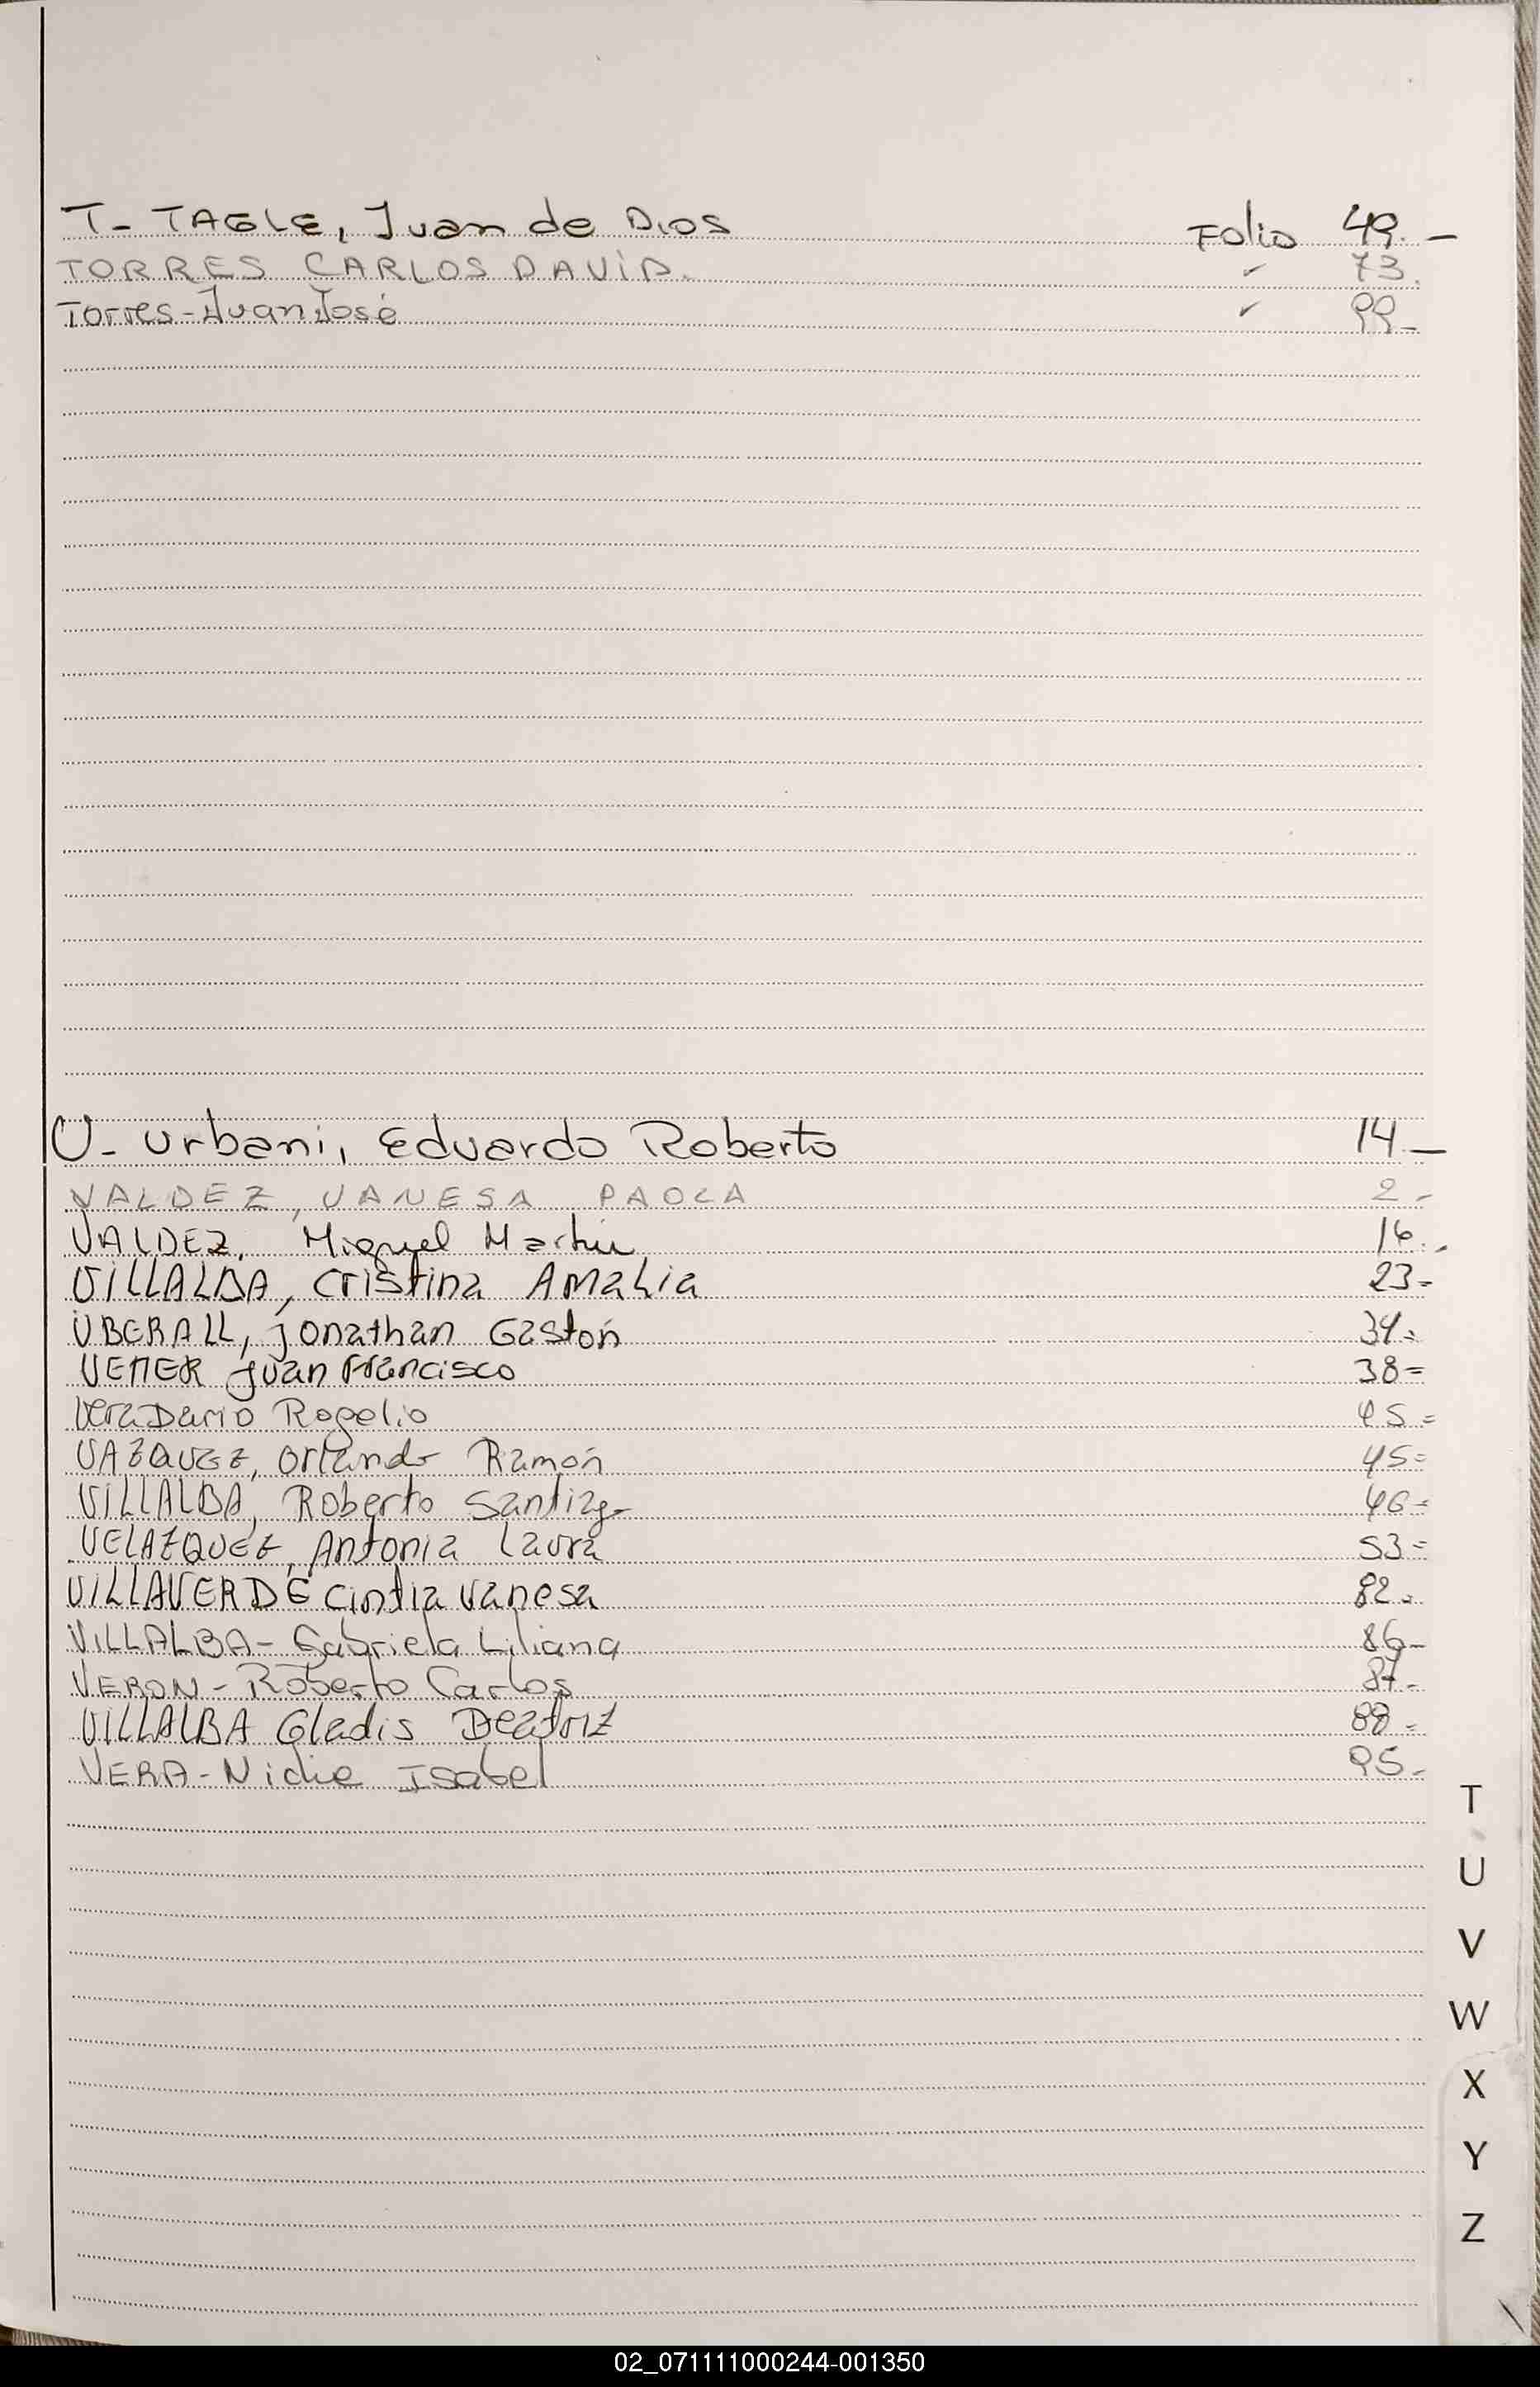 T- TAGLE, Juan de Dios Folio 49.-
TORRES CARLOS DAVID. ✓ 73.
Torres-Juan José ✓ 99-
U- Urbani, Eduardo Roberto 14.-
VALDEZ, VANESA PAOLA 2.-
VALDEZ, Miguel Martin 16.-
VILLALBA, Cristina Amalia 23-
ÜBERALL, Jonathan Gastón 34-
VEMER Juan Francisco 38=
Vera Dario Rogelio 45=
VAZQUEZ, Orlando Ramón 45=
VILLALBA, Roberto Santiago 46=
VELAZQUEZ, Antonia Laura 53=
VILLAVERDE Cintia Vanesa 82-
VILLALBA- Gabriela Liliana 86-
VERON- Roberto Carlos 87-
VILLALBA Gladis Beatriz 88-
VERA- Isabel 95-
T
U
V
W
X
Y
Z
02_071111000244-001350